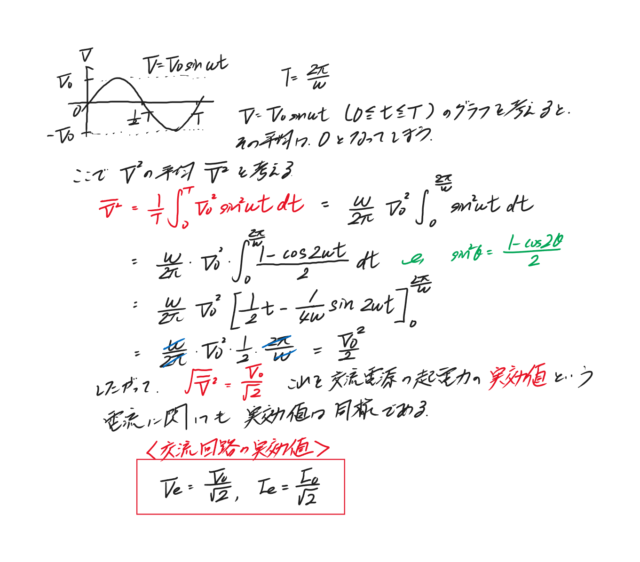 V
V₀
V=V₀sinωt
0
½T
T
-V₀
T=2π/ω
V=V₀sinωt (0≦t≦T)のグラフを考えると、
その平均は、0となってしまう。
ここで V²の平均 V̅²を考える
V̅² = 1/T ∫₀ᵀ V₀² sin²ωt dt = ω/2π V₀² ∫₀^(2π/ω) sin²ωt dt
= ω/2π · V₀² · ∫₀^(2π/ω) (1-cos2ωt)/2 dt
sin²θ = (1-cos2θ)/2
= ω/2π V₀² [1/2 t - 1/4ω sin 2ωt]₀^(2π/ω)
= ω/2π · V₀² · 1/2 · 2π/ω = V₀²/2
したがって、 √V̅² = V₀/√2 これを交流電源の起電力の実効値という
電流に関しても 実効値は同様である。
<交流回路の実効値>
Ve = V₀/√2, Ie = I₀/√2